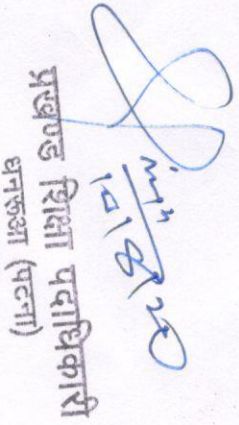 10/8/20
प्रखण्ड शिक्षा पदाधिकारी
धनरूआ (पटना)